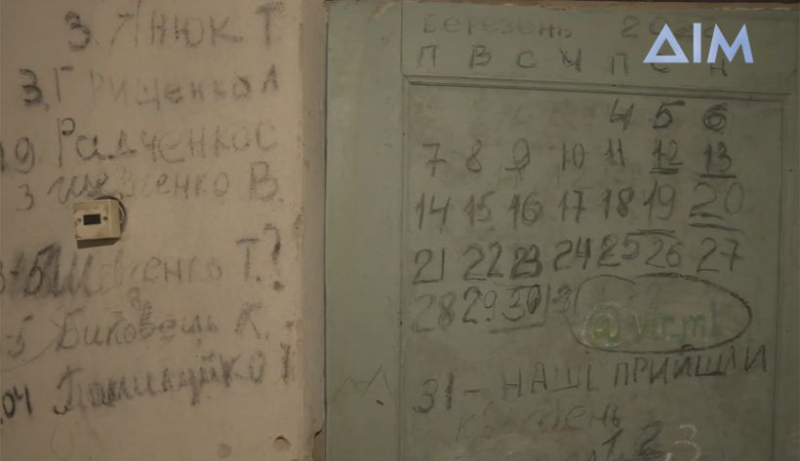 3. Янюк Т
3. Грищенко Л
19. Радченко С
3 Шевченко В.
Шевченко Т.?
5 Биковець К.
04
Березень
ДІМ
П В С Ч П С Н
4 5 6
7 8 9 10 11 12 13
14 15 16 17 18 19 20
21 22 23 24 25 26 27
28 29 30 31
31 - НАШІ ПРИЙШЛИ
квітень
1 2 3